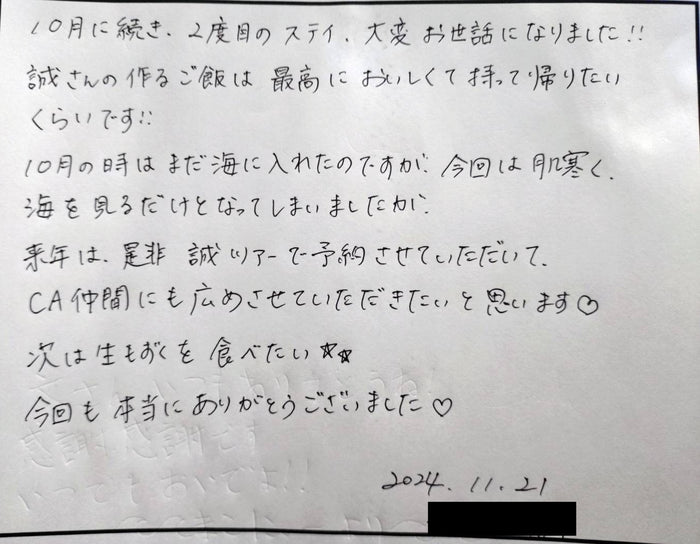 10月に続き、2度目のステイ、大変お世話になりました!!
誠さんの作るご飯は最高においしくて持って帰りたい
くらいです!!
10月の時はまだ海に入れたのですが、今回は肌寒く、
海を見るだけとなってしまいましたが、
来年は、是非 誠ツアーで予約させていただいて、
CA仲間にも広めさせていただきたいと思います♡
次は生もずくを食べたい☆☆
今回も本当にありがとうございました♡
感謝感謝です
いつでもおいでよ!!
2024.11.21